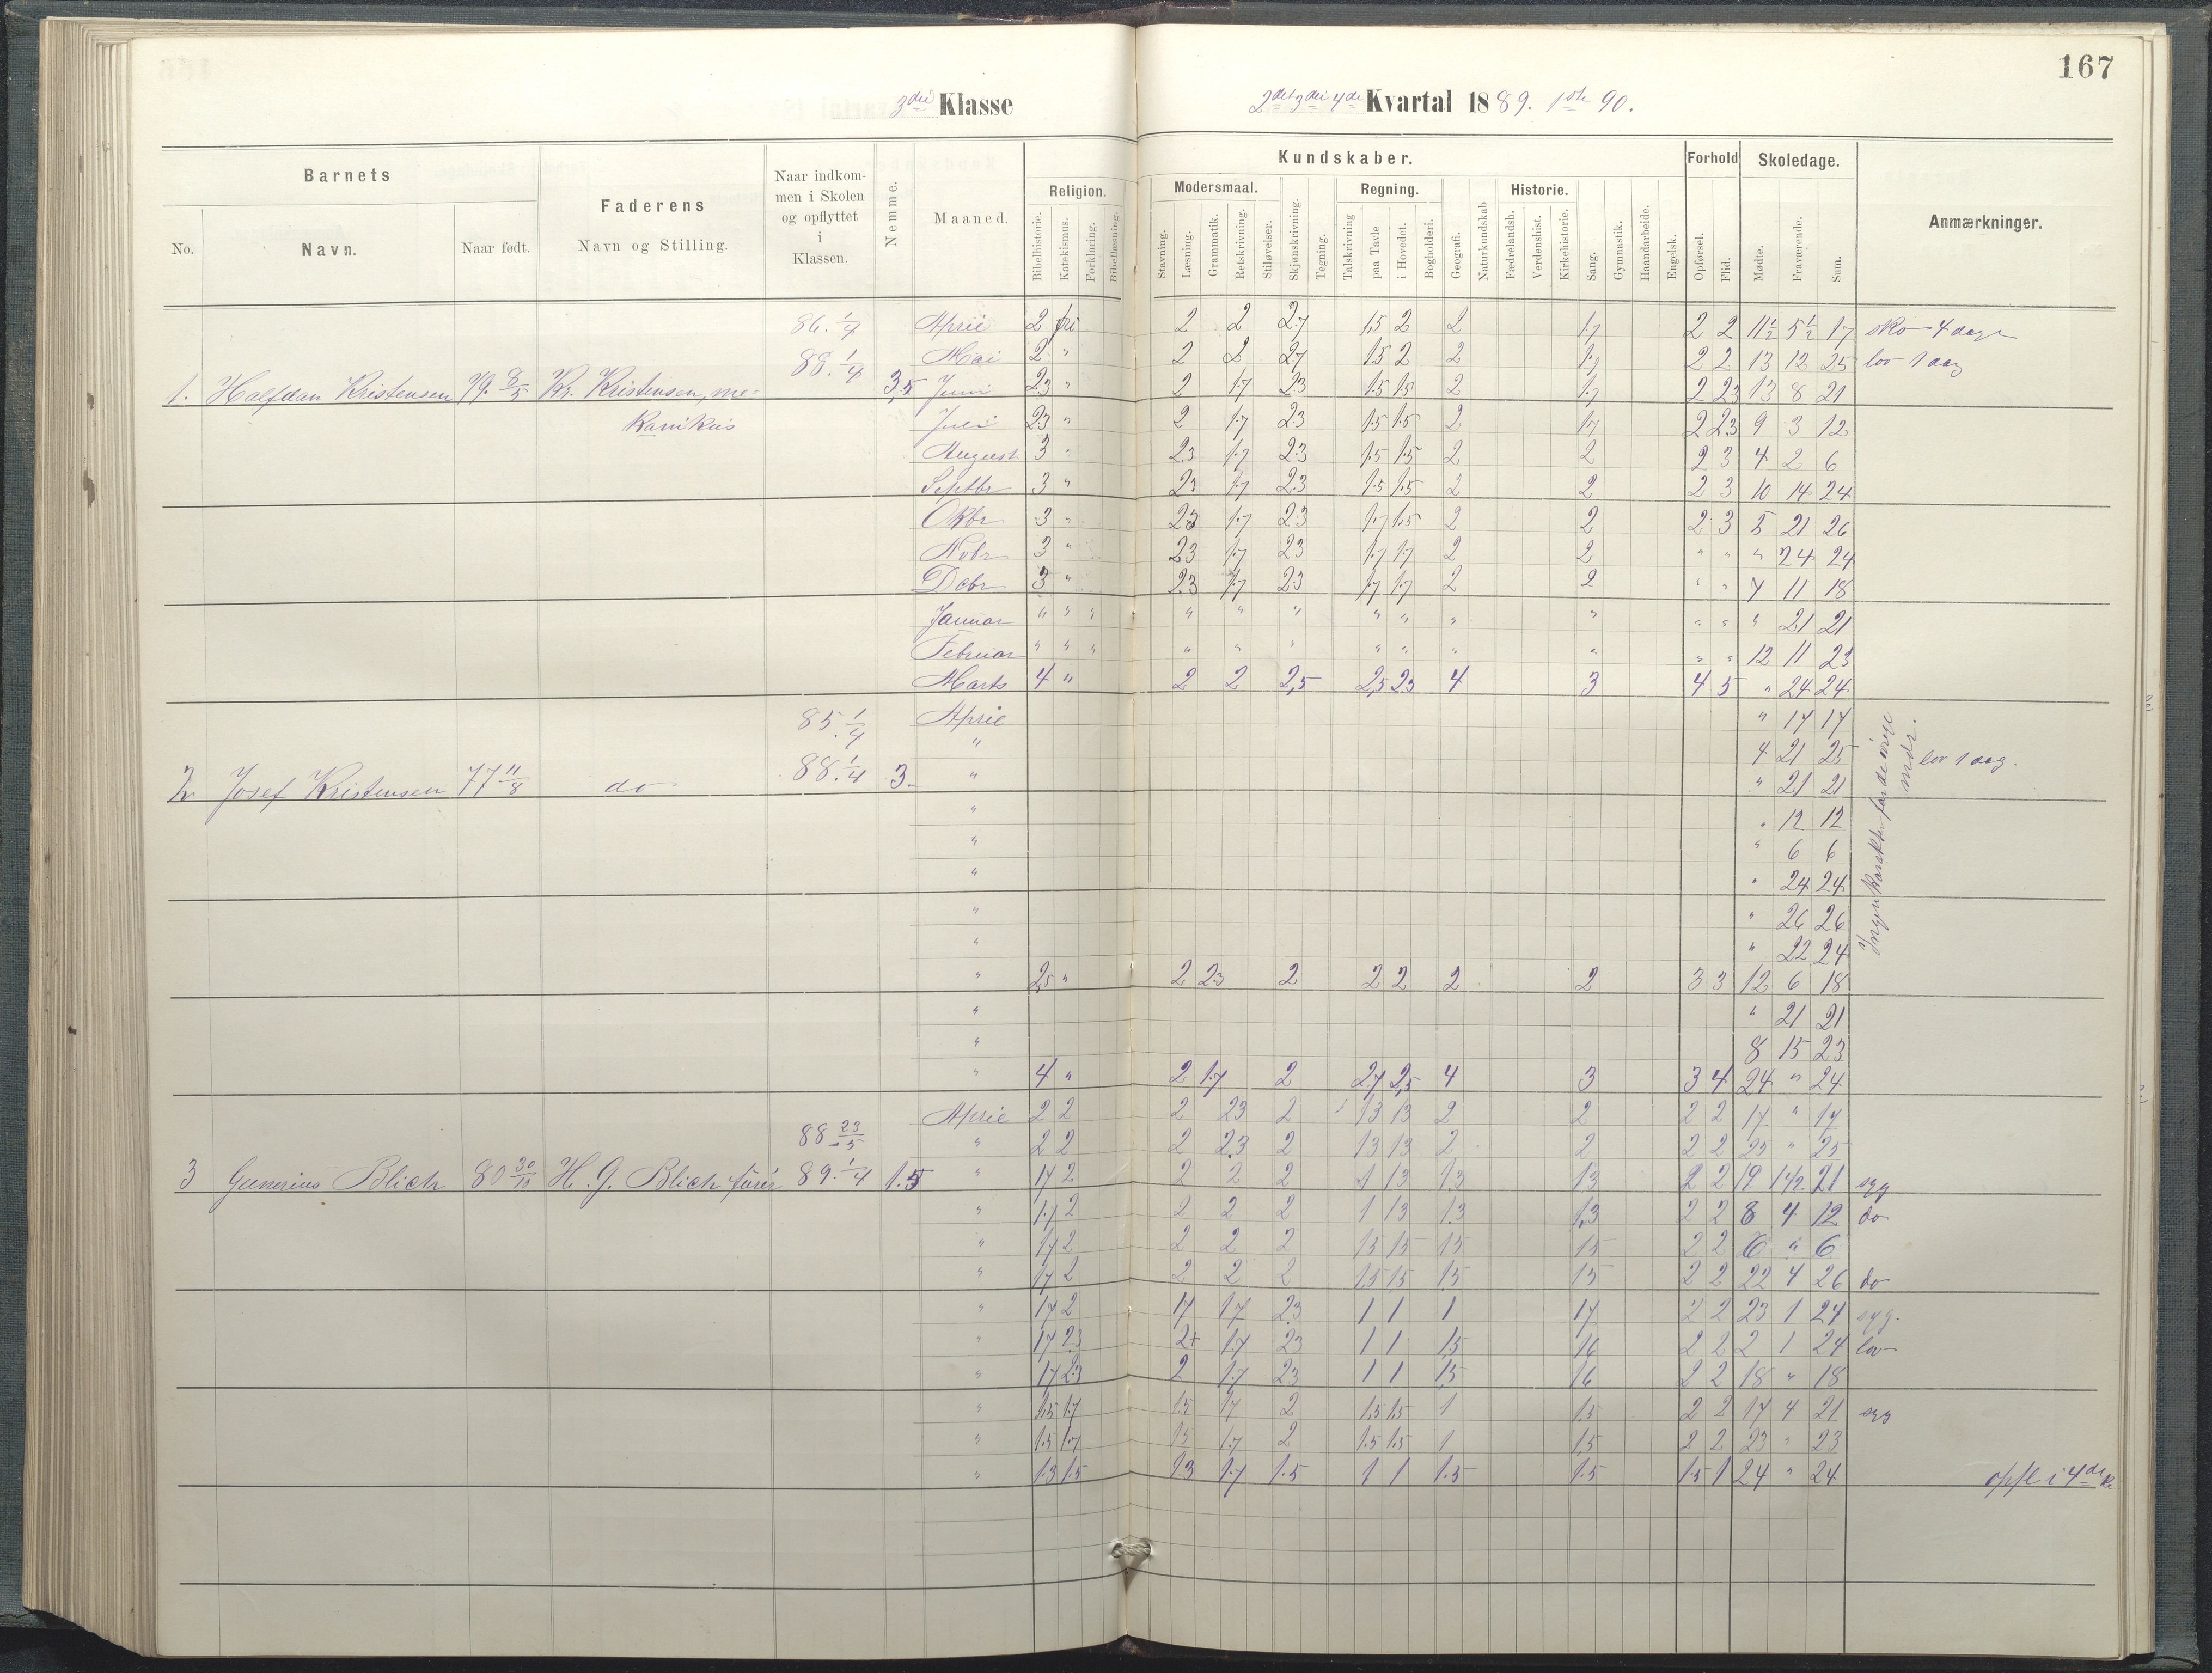 167
3die Klasse 2det 3die 4de Kvartal 1889. 1ste 90.
Barnets
No.
Navn.
Naar født.
Faderens
Navn og Stilling.
Naar indkom-
men i Skolen
og opflyttet
i
Klassen.
Nemme.
Maaned.
Kundskaber.
Religion.
Bibelhistorie.
Katekismus.
Forklaring.
Bibellæsning.
Modersmaal.
Stavning.
Læsning.
Grammatik.
Retskrivning.
Stiløvelser.
Skjønskrivning.
Tegning.
Regning.
Talskrivning
paa Tavle
i Hovedet.
Bogholderi.
Geografi.
Naturkundskab
Historie.
Fædrelandsh.
Verdenshist.
Kirkehistorie.
Sang.
Gymnastik.
Haandarbeide.
Engelsk.
Forhold
Opførsel.
Flid.
Skoledage.
Mødte.
Fraværende.
Sum.
Anmærkninger.
86. 1/4 April 2 fri 2 2 2.7 1.5 2 2 1.7 2 2 11 1/2 5 1/2 17 sko 4 dage
88. 1/4 Mai 2 " 2 2 2.7 1.5 2 2 1.7 2 2 13 12 25 lov 1 dag
1. Halfdan Kristensen 79. 8/5 Kr. Kristensen, me- 3,5 Juni 2.3 " 2 1.7 2.3 1.5 1.5 2 1.7 2 2.3 13 8 21
kanikus Juli 2.3 " 2 1.7 2.3 1.5 1.5 2 1.7 2 2.3 9 3 12
August 3 " 2.3 1.7 2.3 1.5 1.5 2 2 2 3 4 2 6
Septbr 3 " 2.3 1.7 2.3 1.5 1.5 2 2 2 3 10 14 24
Okbr 3 " 2.3 1.7 2.3 1.7 1.5 2 2 2 3 5 21 26
Nvbr 3 " 2.3 1.7 2.3 1.7 1.7 2 2 " " " 24 24
Dcbr 3 " 2.3 1.7 2.3 1.7 1.7 2 2 " " 7 11 18
Januar " " " " " " " " " " " " " 21 21
Februar " " " " " " " " " " " " 12 11 23
Marts 4 " 2 2 2,5 2,5 2.3 4 3 4 5 " 24 24
85 1/4 April " 17 17
" 4 21 25 lov 1 dag.
88. 1/4
2 Josef Kristensen 77 11/8 do 3. " " 21 21
" " 12 12
" " 6 6
" " 24 24
" " 26 26
" " 22 24
Ingen karakter for de øvrige
mdr.
" 2,5 " 2 2.3 2 2 2 2 2 3 3 12 6 18
" " 21 21
" 8 15 23
" 4 " 2 1.7 2 2.7 2,5 4 3 3 4 24 " 24
April 2 2 2 2.3 2 1.3 1.3 2 2 2 2 17 " 17
88 23/5 " 2 2 2 2.3 2 1.3 1.3 2 2 2 2 25 " 25
3 Gunerius Blich 80 30/10 H. G. Blich 89. 1/4 1.5 " 1.7 2 2 2 2 1 1.3 1.3 1.3 2 2 19 1 1/2 21 syg
" 1.7 2 2 2 2 1 1.3 1.3 1.3 2 2 8 4 12 do
" 1.7 2 2 2 2 1.5 1.5 1.5 1.5 2 2 6 " 6
" 1.7 2 2 2 2 1.5 1.5 1.5 1.5 2 2 22 4 26 do
" 1.7 2 1.7 1.7 2.3 1 1 1 1.7 2 2 23 1 24 syg.
" 1.7 2.3 2+ 1.7 2.3 1 1 1.5 1.6 2 2 2 1 24 lov
" 1.7 2.3 2 1.7 2.3 1 1 1.5 1.6 2 2 18 " 18
" 1.5 1.7 1.5 1.7 2 1.5 1.5 1 1.5 2 2 17 4 21 syg
" 1.5 1.7 1.5 1.7 2 1.5 1.5 1 1.5 2 2 23 " 23
" 1.3 1.5 1.3 1.7 1.5 1 1 1.5 1.5 1.5 1 24 " 24 opfl i 4de kl